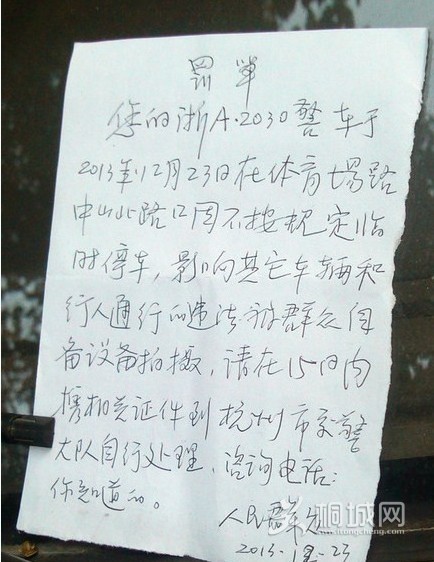 罚单
您的浙A·2030警车于
2013年12月23日在体育场路
中山北路口因不按规定临
时停车，影响其它车辆和
行人通行的违法被群众自
备设备拍摄，请在15日内
携相关证件到杭州市交警
大队自行处理，咨询电话：
你知道的。
人民群众
2013-12-23
桐城网